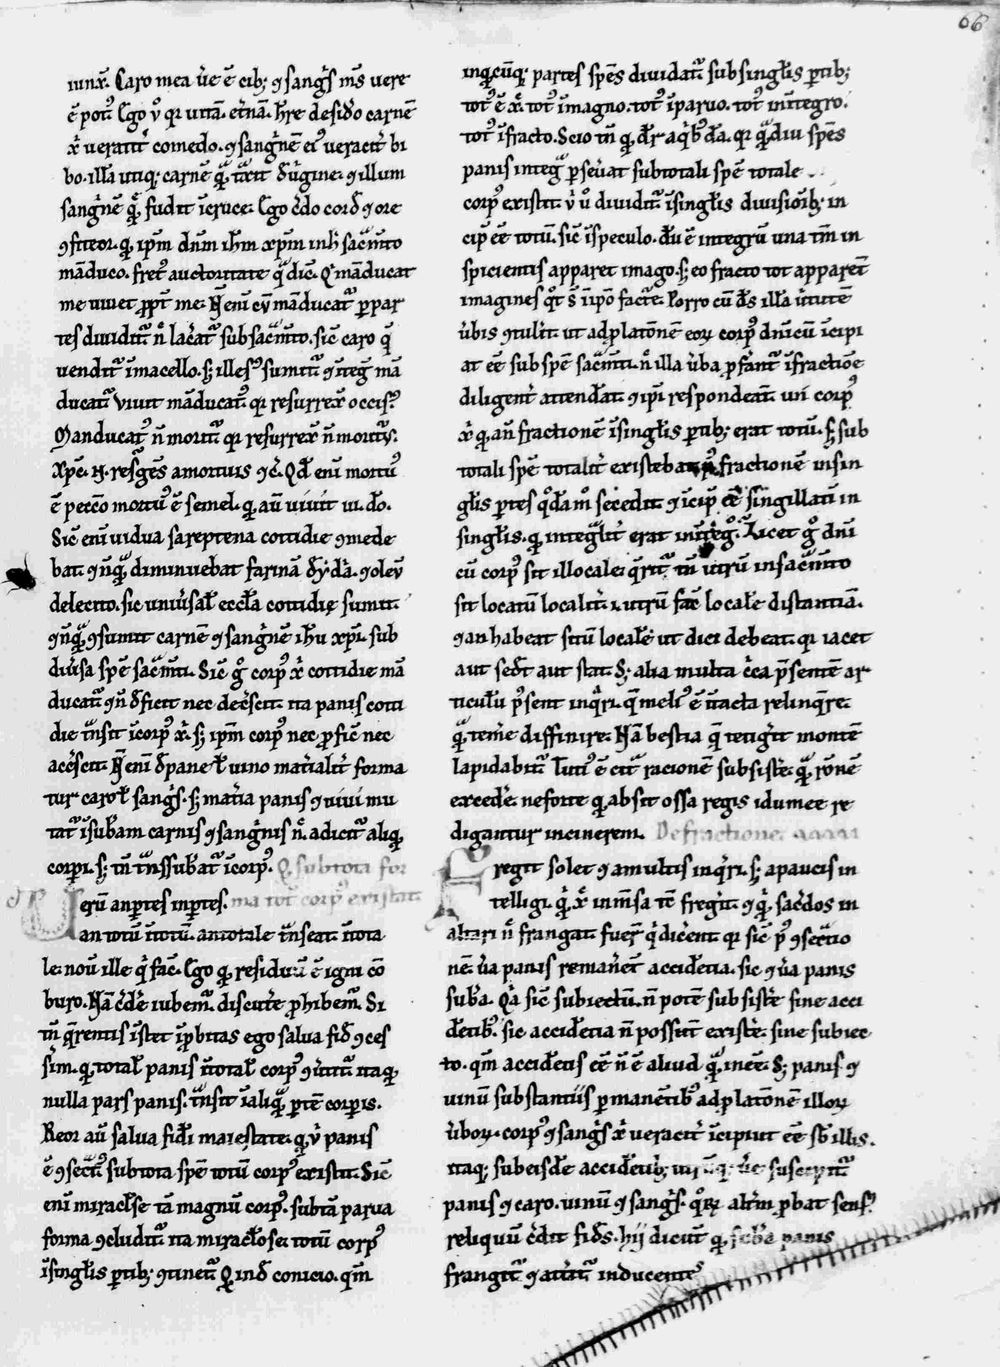 66
iunx̄. Caro mea ůe ē cib; ꝯ sangͥs mͨs uere
ē pot᷒. Ego ůo qꝛ uitā. et̄nā. h̄re desid̓o carnē
x̄ ueracit̓ comedo. ꝯ sangͥnē ei᷒ ueracit̓ bi
bo. illā utiq; carnē qᷓ tͣxit d̓ uͥgine. ꝯ illum
sangͥnē qͥ fudit ī cruce. Ego c̓do cord̓ ꝯ ore
ꝯfiteor. ꝙ ip̄m dn̄m ih̄m xp̄m in h̓ sac̄m̄to
māduco. fret᷒ auctoritate qᷓ dic̄. Q̇ māducat
me uiuet ꝓpt̓ me. N̄ eni cū māducat᷑ ꝑ par
tes diuidit᷑ n̄ lac̓at᷑ sub sac̄m̄to. sic̄ caro qͥ
uendit᷑ ī macello. s; illes᷒ sumit᷑ ꝯ integ̓ mā
ducat᷑. Viuit māducat᷒ qꝛ resurrex̓ occis᷒.
Manducat᷒ n̄ morit᷑ qꝛ resurrex̓ n̄ moritur᷒.
Xp̄c. n̄. resͥgēs a mortuis ꝯ c̄. Qd̓ eni mortu᷒
ē peccō mortu᷒ ē semel. ꝙ aū uiuit ui. dō.
Sic̄ eni uidua sareptena cottidie ꝯmede
bat ꝯ nͥqᷓ diminuebat farinā d̓ ẏdͥa. ꝯ oleū
d̓ lecito. sic uniu͛sal̓ eccl̄a cottidie sumit.
ꝯ nͥqᷓ ꝯsumit carnē ꝯ sangͥnē ih̄u xp̄i. sub
diu͛sa spē̄ sac̄m̄ti. Sic̄ gͦ corp᷒ x̄ cottidie mā
ducat᷑ ꝯ n̄ d̓ficit nec dec̓scit. ita panis coti
die tͣnsit ī corp᷒ x̄. s; ip̄m corp᷒ nec ꝓfic̄ nec
acc̓scit. N̄ eni d̓ pane ł uino mat̓ialit̓ forma
tur caro ł sangͥs. s; mat̓ia panis ꝯ uini mu
tat᷑ ī sub̄am carnis ꝯ sangͥnis n̄. adicit᷑ aliqͥ
corpi. s; tn̄ tͣnssubͣat᷑ ī corp᷒. Q̇ sub tota for
Verū an ꝑtes in ꝑtes. ma tot̄ corp᷒ existat
an totū ī totū. an totale tͣnseat ī tota
le. nou̓ ille qͥ fac̄. Ego ꝙ residuū ē igni cō
buro. Nā c̓d̓e iubem᷑. discut̓e ꝓhibem᷑. Si
tn̄ q̄rentis īstet īꝓbitas ego salua fid̓ ꝯces
sim. ꝙ total̓ panis ī total̓ corp᷒ ꝯu͛tit᷑ itaqͥ
nulla pars panis. tͣnsit ī aliqᷓ ꝑtē corpis.
Reor aū salua fidi maiestate. ꝙ v̓ panis
ē ꝯsec̓t᷑ sub tota spē totū corp᷒ existit. Sic̄
eni miracl̓se tā magnū corp᷒. sub tā parua
forma ꝯcludit᷑ ita miracl̓ose totū corp᷒
ī singl̓is ꝑtib; ꝯtinet᷑ Q̇ ind̓ conicio. qm̄
inqͥcūq; partes spēs diuidat᷑ sub singl̓is ꝑtib;
tot᷒ ē x̄ tot᷒ ī magno. tot᷒ ī paruo. tot᷒ in integro.
tot᷒ ī fracto. Scio tn̄ ꝙ d̄r a qͥb᷒dā. qꝛ qᷓdiu spēs
panis integͣ ꝑseu͛at sub totali spē totale
corp᷒ existit. v̓ u̓ diuidit᷑ ī singl̓is diuisiōib; in
cip̄ eē totū. sic̄ ī speculo. dū ē integrū una tm̄ in
spicientis apparet imago. s; eo fracto tot apparēt
imagines qͦt s̄ ī ip̄o factͤ. Porro cū d̄s illā u͛tutē
u͛bis ꝯtulit. ut ad ꝓlatōnē eoꝝ corp᷒ dn̄icū īcipi
at eē sub spē sac̄m̄ti. n̄ illa u͛ba ꝓfͣant᷑ ī fractiōe
diligent̓ attendāt. ꝯ ip̄i respondeāt. uń corp᷒
x̄ ꝙ an̄ fractionē ī singl̓is ꝑtib; erat totū. s; sub
totali spē totalit̓ existebat p᷒ fractionē in sin
gl̓is ꝑtes qͦdā mͦ secedit. ꝯ īcip̄ eē singillati in
singl̓is. ꝙ integͣlit̓ erat in integͦ. Licet gͦ dn̄i
cū corp᷒ sit illocale. qͥrit᷑ tn̄ utrū in sac̄m̄to
sit locatū localit̓. ⁊ utrū fac̄ locale distantiā.
ꝯ an habeat sitū localē ut dici debeat. qꝛ iacet
aut sed̓t aut stat. s; alia multa c̓ca pͥsentē ar
ticulū pͥsent inqͥri. qᷓ meli᷒ ē ītacta relinqͥre.
qᷓ tem̓e diffinire. Nā bestia qͤ tetig̓it montē
lapidabit᷑. Tuti᷒ ē cit᷑ racionē subsist̓e. qᷓ. rōnē
exced̓e. ne forte ꝙ absit ossa regis idumee re
digantur in cinerem. De fractione
Fregit solet ꝯ a multis inqͥri. s; a paucis in
telligi. qͥ. x̄ in mͣsa tē fregit. ꝯ qͥ. sac̓dos in
altari n̄ frangat. fuer̄ qͥ dic̓ent. qꝛ sic̄ p᷒ ꝯsec̄tio
nē. u̓a panis remanēt accid̓tia. sic ꝯ u̓a panis
subͣa. Qͣ sic̄ subiectū. n̄ potē subsist̓e sine acci
d̄tib᷒. sic accid̓tia n̄ possūt exist̓e. sine subiec
to. qm̄ accid̓tis eē n̄ ē aliud qᷓ. inēē. s; panis ꝯ
uinū substantiis ꝑmanētib᷒ ad ꝓlatōnē illoꝝ
u͛boꝝ. corp᷒ ꝯ sangͥs x̄ ueracit̓ īcipiut eē sb̓ illis.
itaq; sub eisdē accid̓tib; u͛ suscipit᷑
panis ꝯ caro. uinū ꝯ sangͥs. qͦꝝ alt̓m ꝓbat sens᷒.
reliquū c̓dit fid̓s. hij dicūt ꝙ sub̄a panis
frangit᷑ ꝯ atterit᷑ inducentes